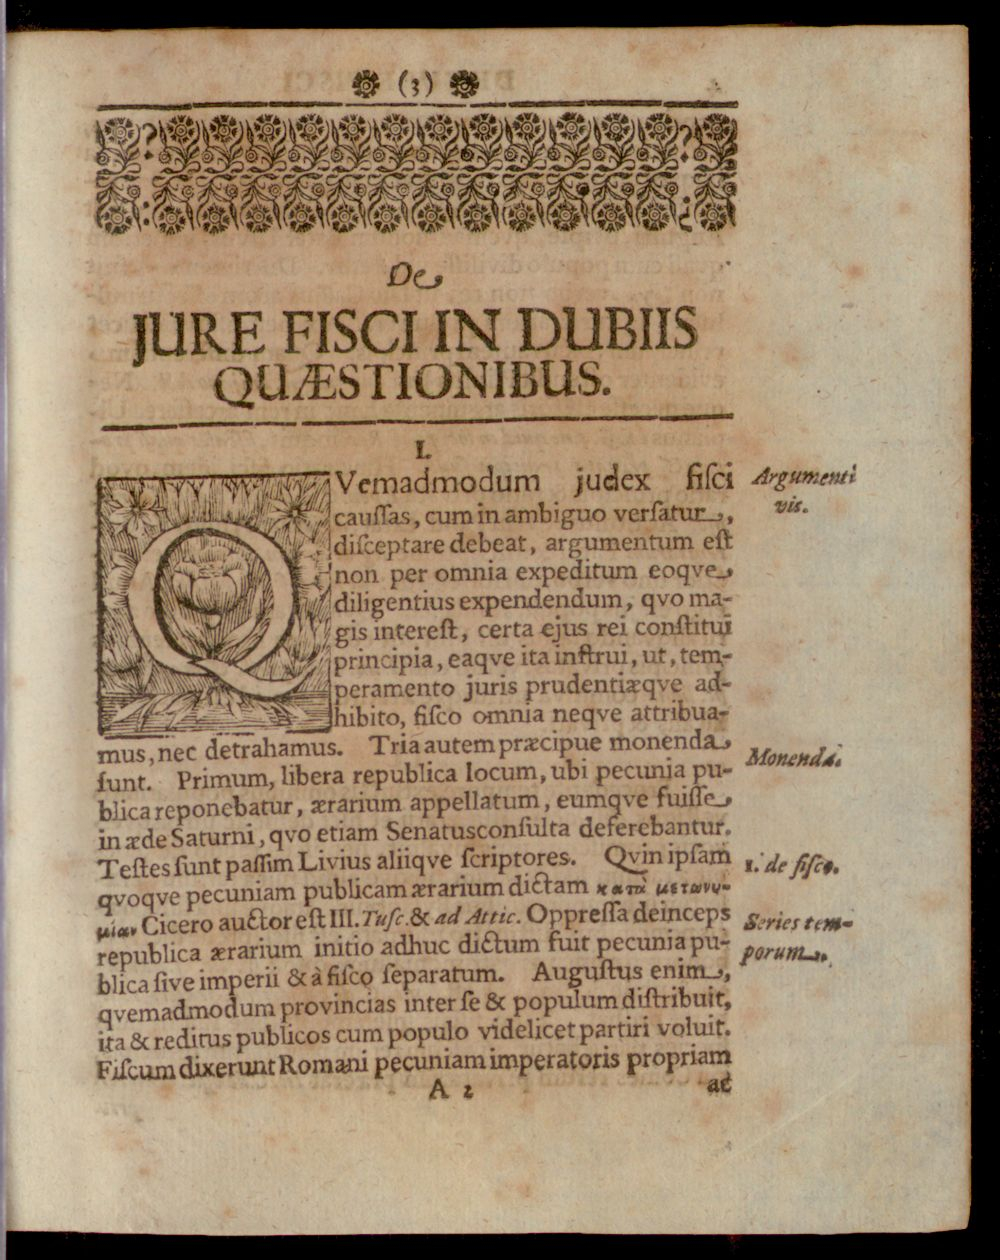 (3)
De
JURE FISCI IN DUBIIS
QUÆSTIONIBUS.
I.
QVemadmodum judex fisci
Argumenti
vis.
caussas, cum in ambiguo versatur,
disceptare debeat, argumentum est
non per omnia expeditum eoqve
diligentius expendendum, qvo ma-
gis interest, certa ejus rei constitui
principia, eaqve ita instrui, ut, tem-
peramento juris prudentiæqve ad-
hibito, fisco omnia neqve attribua-
mus, nec detrahamus. Tria autem præcipue monenda
Monenda.
sunt. Primum, libera republica locum, ubi pecunia pu-
blica reponebatur, ærarium appellatum, eumqve fuisse
in æde Saturni, qvo etiam Senatusconsulta deferebantur.
Testes sunt passim Livius aliiqve scriptores. Qvin ipsam
1. de fisco.
qvoqve pecuniam publicam ærarium dictam κατὰ μετωνυ-
μίαν Cicero auctor est III. Tusc. & ad Attic. Oppressa deinceps
Series tem-
porum.
republica ærarium initio adhuc dictum fuit pecunia pu-
blica sive imperii & à fisco separatum. Augustus enim,
qvemadmodum provincias inter se & populum distribuit,
ita & reditus publicos cum populo videlicet partiri voluit.
Fiscum dixerunt Romani pecuniam imperatoris propriam
A 2
ac